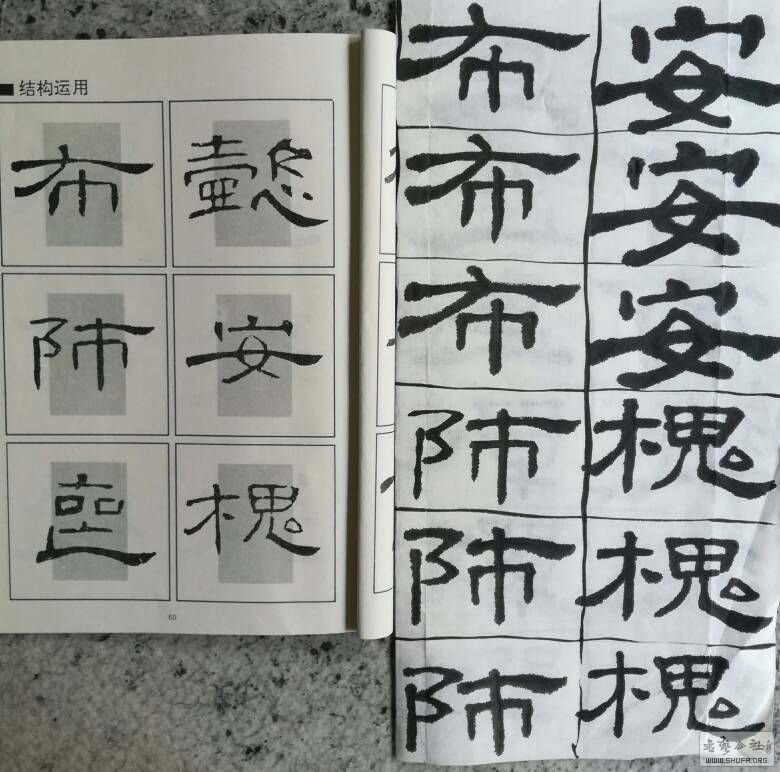 结构运用
布 懿
安
槐
60
布 安
布 安
布 安
槐
槐
槐
书艺公社
WWW.SHUFA.ORG